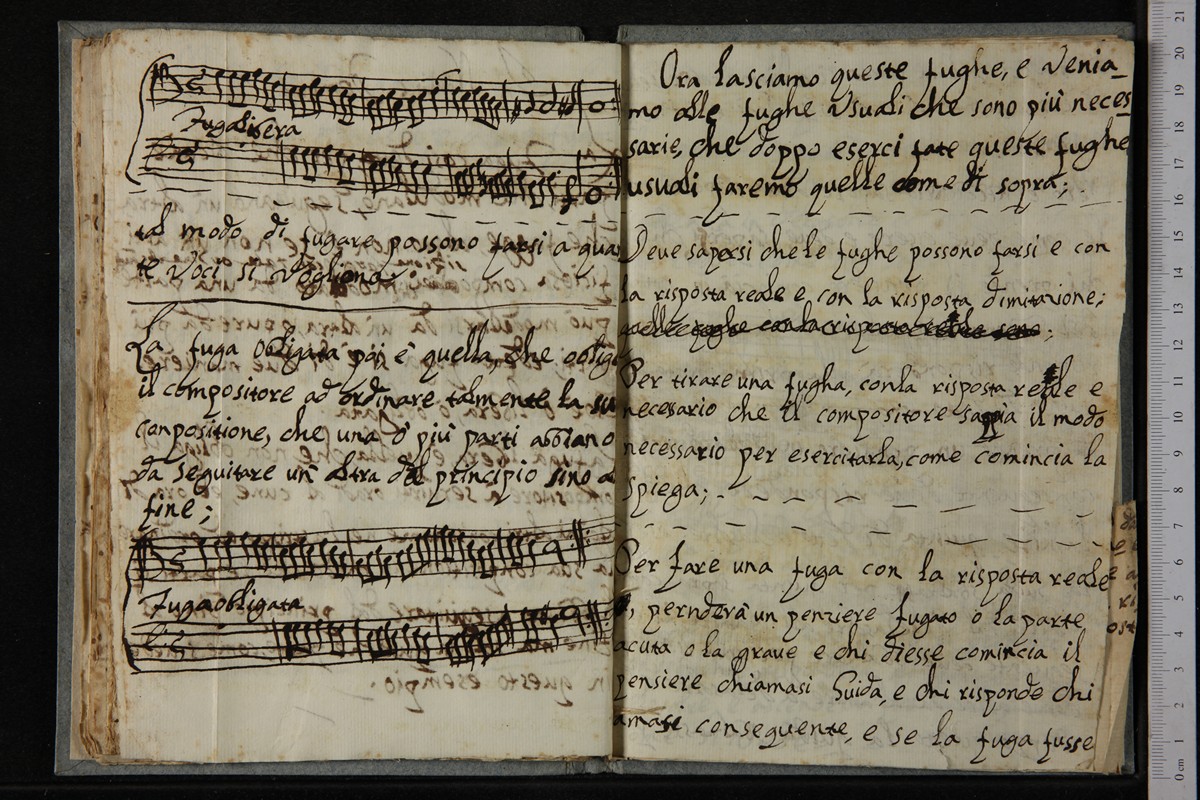 Fuga libera
tal modo di fugare possono farsi a qua
te Voci si Vogliono
La fuga obligata poi è quella, che obliga
il compositore ad ordinare talmente la su
conpositione, che una ò più parti abbiano
da seguitare un altra dal principio sino al
fine;
Fuga obligata
n questo esempio
Ora lasciamo queste fughe, e venia_
mo alle fughe Usuali che sono più neces
sarie, che doppo eserci fate queste fughe
usuali faremo quelle come di sopra;
Deve sapersi che le fughe possono farsi e con
la risposta reale e con la risposta dimitazione;
quelle fughe con la risposta reale sono;
Per tirare una fugha, con la risposta reale e
necesario che il compositore sappia il modo
necessario per esercitarla, come comincia la
Spiega;
Per fare una fuga con la risposta reale
, pernderà un penziere fugato o la parte
acuta o la graue e chi diesse comincia il
pensiere chiamasi Guida, e chi risponde chi
amasi consequente, e se la fuga fusse